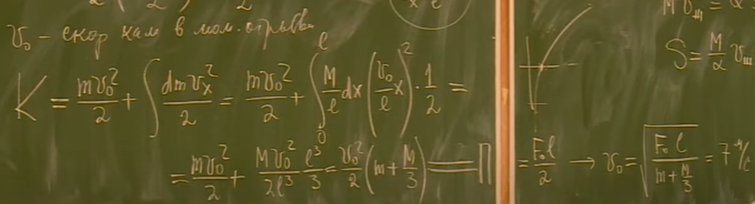 v₀ - скор кам в мом. отрыва
S = M/2 v
K = mv₀²/2 + ∫ dm vₓ²/2 = mv₀²/2 + ∫₀^ℓ M/ℓ dx (v₀/ℓ x)² · 1/2 =
= mv₀²/2 + Mv₀²/2ℓ³ ℓ³/3 = v₀²/2 (m + M/3) = П = F₀ℓ/2 → v₀ = √(F₀ℓ/(m + M/3)) = 7 м/с